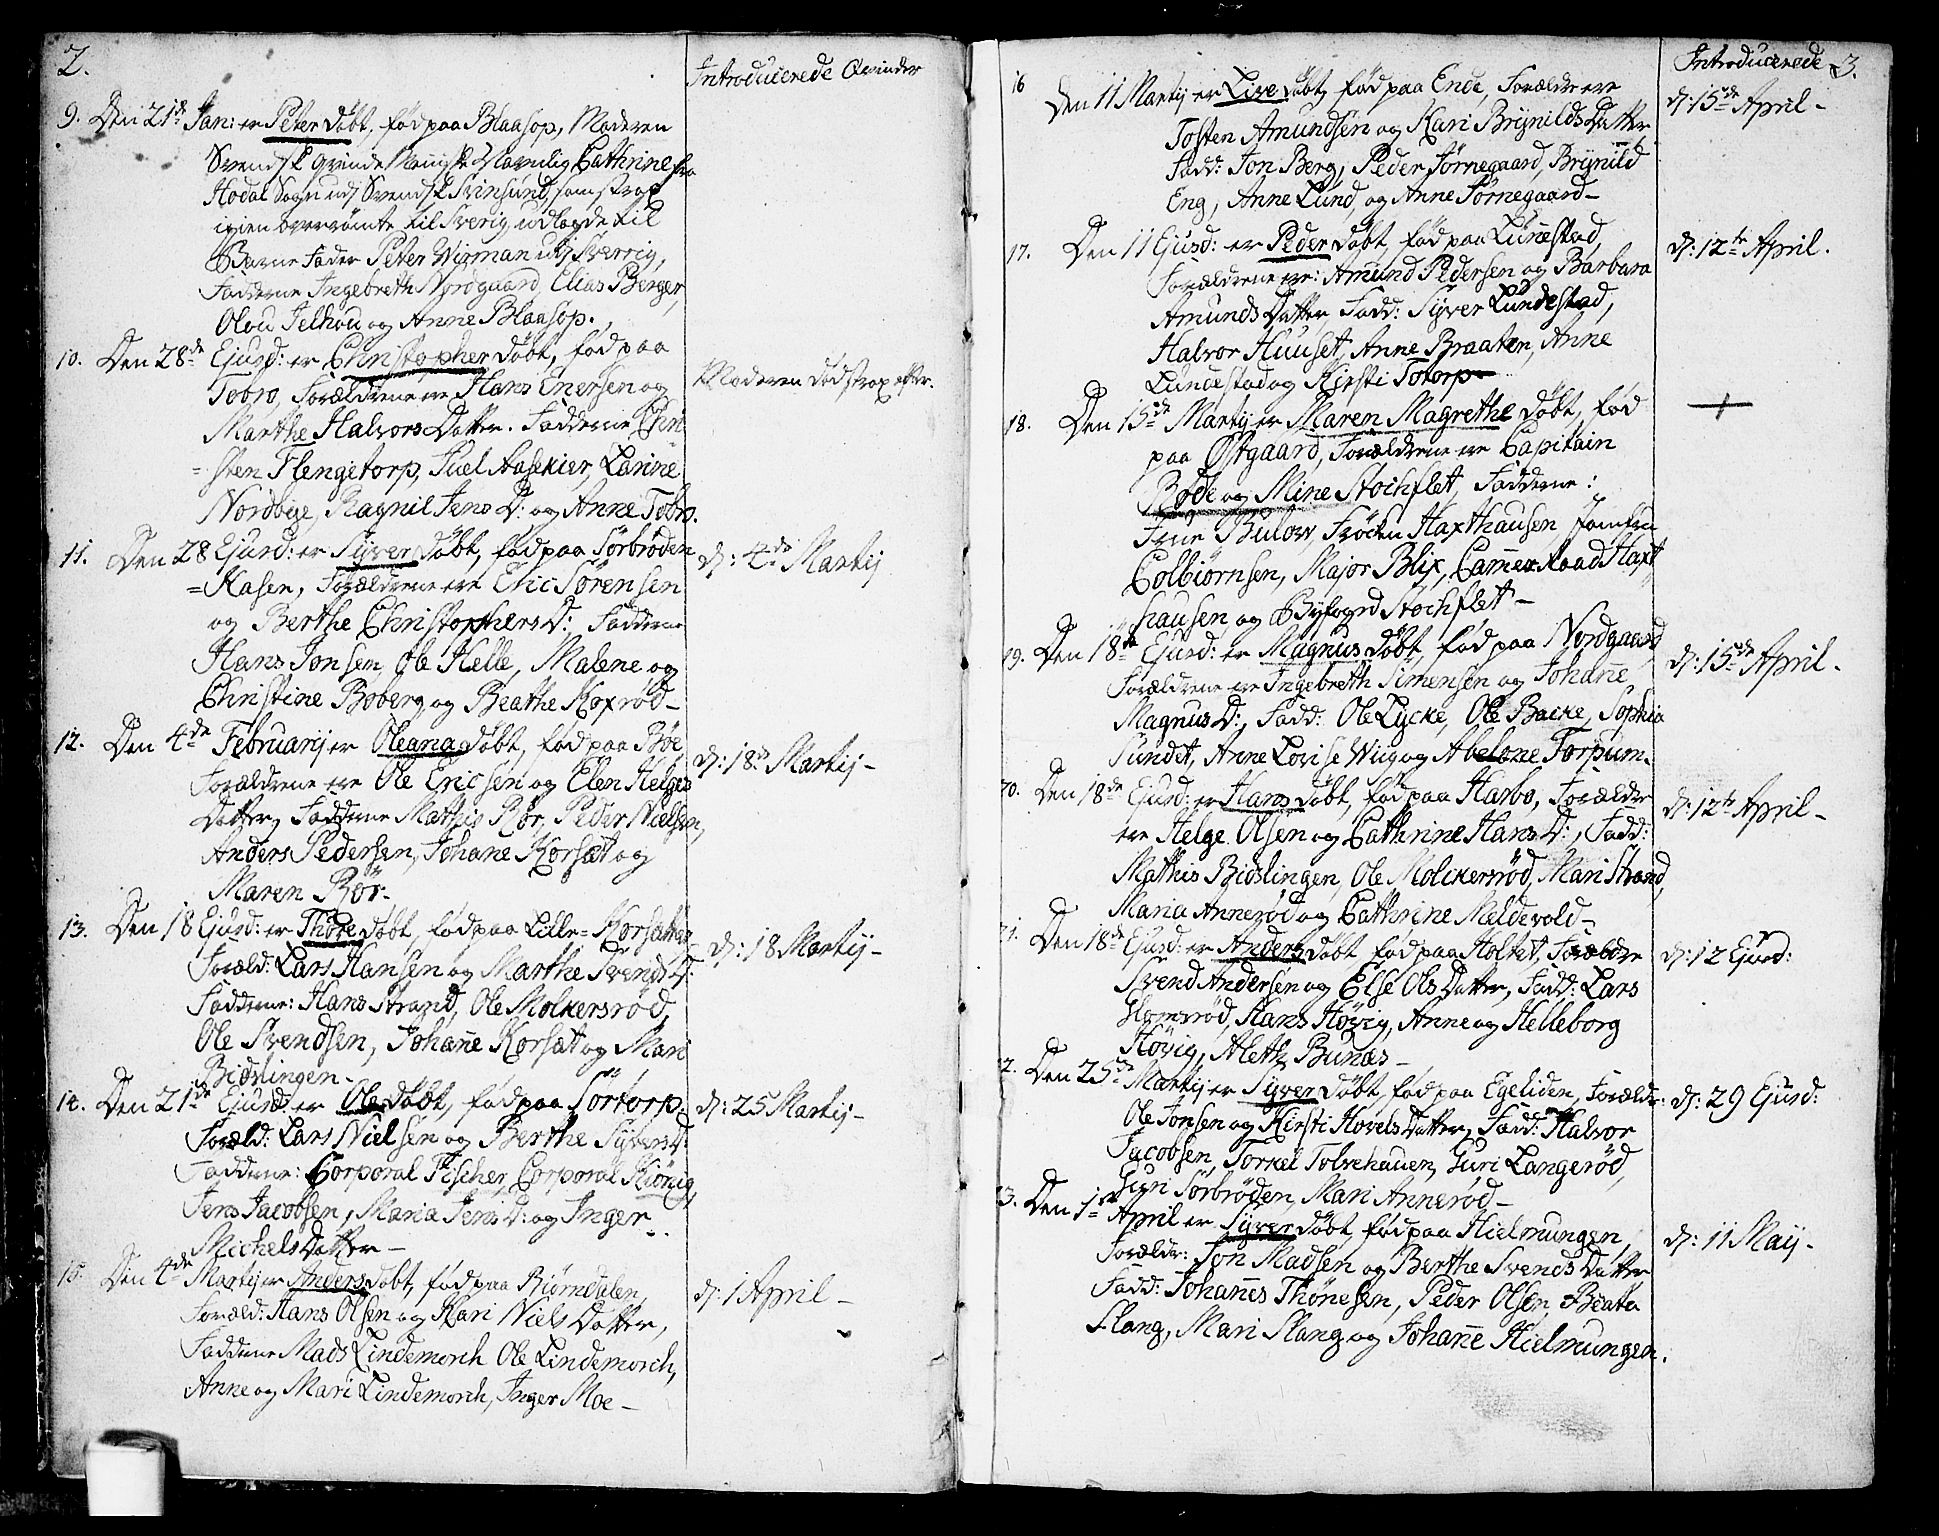 2.
Introducerede Qvinder
9. Den 21de Jan: er Peter döbt, född paa Blaasop, Moderen
Svendsk qvinde Menniske Navnlig Cathrine fra
Hodal Sogn udj Svendsk Svinsund, som strax
igien til Sverig, udlagde til
Barne Fader Peter Wirman udj Sverrig,
Fadderne Ingebreth Nordgaard, Elias Berger,
Olou Jelhou og Anne Blaasop.
10. Den 28de Ejusd: er Christopher döbt, fød paa
Tobro, Forældrene ere Hans Enersen og
Marthe Halvors Datter. Fadderne Chri-
=sten Flengetorp, Juel Aasekier, Larine
Nordbye, Ragnil Jens D: og Anne Tobro.
Moderen död strax efter.
11. Den 28 Ejusd: er Syver döbt, fød paa Sörbröden
=Kasen, Forældrene ere Eric Sörensen
og Berthe Christophers D: Fadderne
Hans Jonsen, Ole Helle, Malene og
Christine Boberg, og Beathe Koxröd-
d: 4de Martij
12. Den 4de Februarij er Oleana döbt, fød paa Böe
Forældrene ere Ole Ericsen og Elen Helges
Datter, Fadderne Mathis Rör, Peder Nielsen,
Anders Pedersen, Johane Korsæt og
Maren Rör.
d: 18de Martij-
13. Den 18 Ejusd: er Thore döbt, fød paa Lille= Korsætter
Foræld: Lars Hansen og Marthe Svends D:
Fadderne: Hans Strand, Ole Molkersröd,
Ole Svendsen, Johanne Korsæt og Mari
Bidslingen-
d: 18 Martij-
14. Den 21de Ejusd: er Ole döbt, fød paa Törtorp.
Foræld: Lars Nielsen og Berthe Syvers D:
Fadderne: Corporal Fischer, Corporal Kiönig,
Jens Jacobsen, Maria Jens D: og Inger
Michels Datter-
d: 25 Martij-
15. Den 4de Martij er Anders döbt, fød paa Biörndalen,
Foræld: Hans Olsen og Kari Niels Datter,
Fadderne Mads Lindemorch Ole Lindemorch,
Anne og Mari Lindemorch, Inger Moe-
d: 1 April-
Introducerede 3.
16 Den 11 Martij er Live döbt, fød paa Ende, Forældre ere
Tosten Amundsen og Kari Brynilds Datter
Fadd: Jon Berg, Peder Törnegaard, Brynild
Eng, Anne Lund, og Anne Törnegaard-
d: 15de April-
17. Den 11 Ejusd: er Peder döbt, fød paa Lunestad,
Forældrene ere: Amund Pedersen og Barbara
Amunds Datter, Fadd: Syver Lundestad,
Halvor Huuset, Anne Braaten, Anne
Lundestad og Kirsti Totorp-
d: 12te April.
18. Den 15de Martij er Maren Magrethe döbt, fød
paa Östgaard, Forældrene ere Capitain
Bøde og Mine Stochflet, Fadderne:
Frue Bulow, Fröcken Haxthausen Jomfru
Colbiörnsen, Major Blix, Camer Raad Haxt
hausen, og Byfogd Stochflet-
19. Den 18de Ejusd: er Magnus döbt, fød paa Nordgaard,
Forældrene ere Ingebreth Simensen og Johanne
Magnus D:, Fadd: Ole Lycke, Ole Backe, Sophia
Sundet, Anne Lovise Wiig og Abelone Torpum.
d: 15de April.
20. Den 18de Ejusd: er Hans döbt, fød paa Harbo, Forældre
ere Helge Olsen og Cathrine Hans D:, Fadd:
Mathis Bidslingen, Ole Molckersröd, Mari Strand,
Maria Anneröd og Cathrine Meldevold-
d: 12te April-
21. Den 18de Ejusd: er Anders döbt, fød paa Holtet, Forældre
Svend Andersen og Else Ols Datter, Fadd: Lars
Glomsröd, Hans Hövig, Anne og Helleborg
Hövig, Aleth Bunæs-
d: 12 Ejusd:
2. Den 25de Martij er Syver döbt, fød paa Egeliden, Forældr:
Ole Jonsen og Kirsti Hovels Datter, Fadd: Halvor
Jacobsen, Torkel Tolvehauen, Guri Langeröd,
Guri Sörbröden, Mari Anneröd-
d: 29 Ejusd:
3. Den 1ste April er Syver döbt, fød paa Hielmungen,
Forældr: Jon Madsen og Berthe Svends Datter
Fadd: Johannes Thönesen, Peder Olsen, Beata
Slang, Mari Slang og Johanne Hielmungen.
d: 11 Maij-